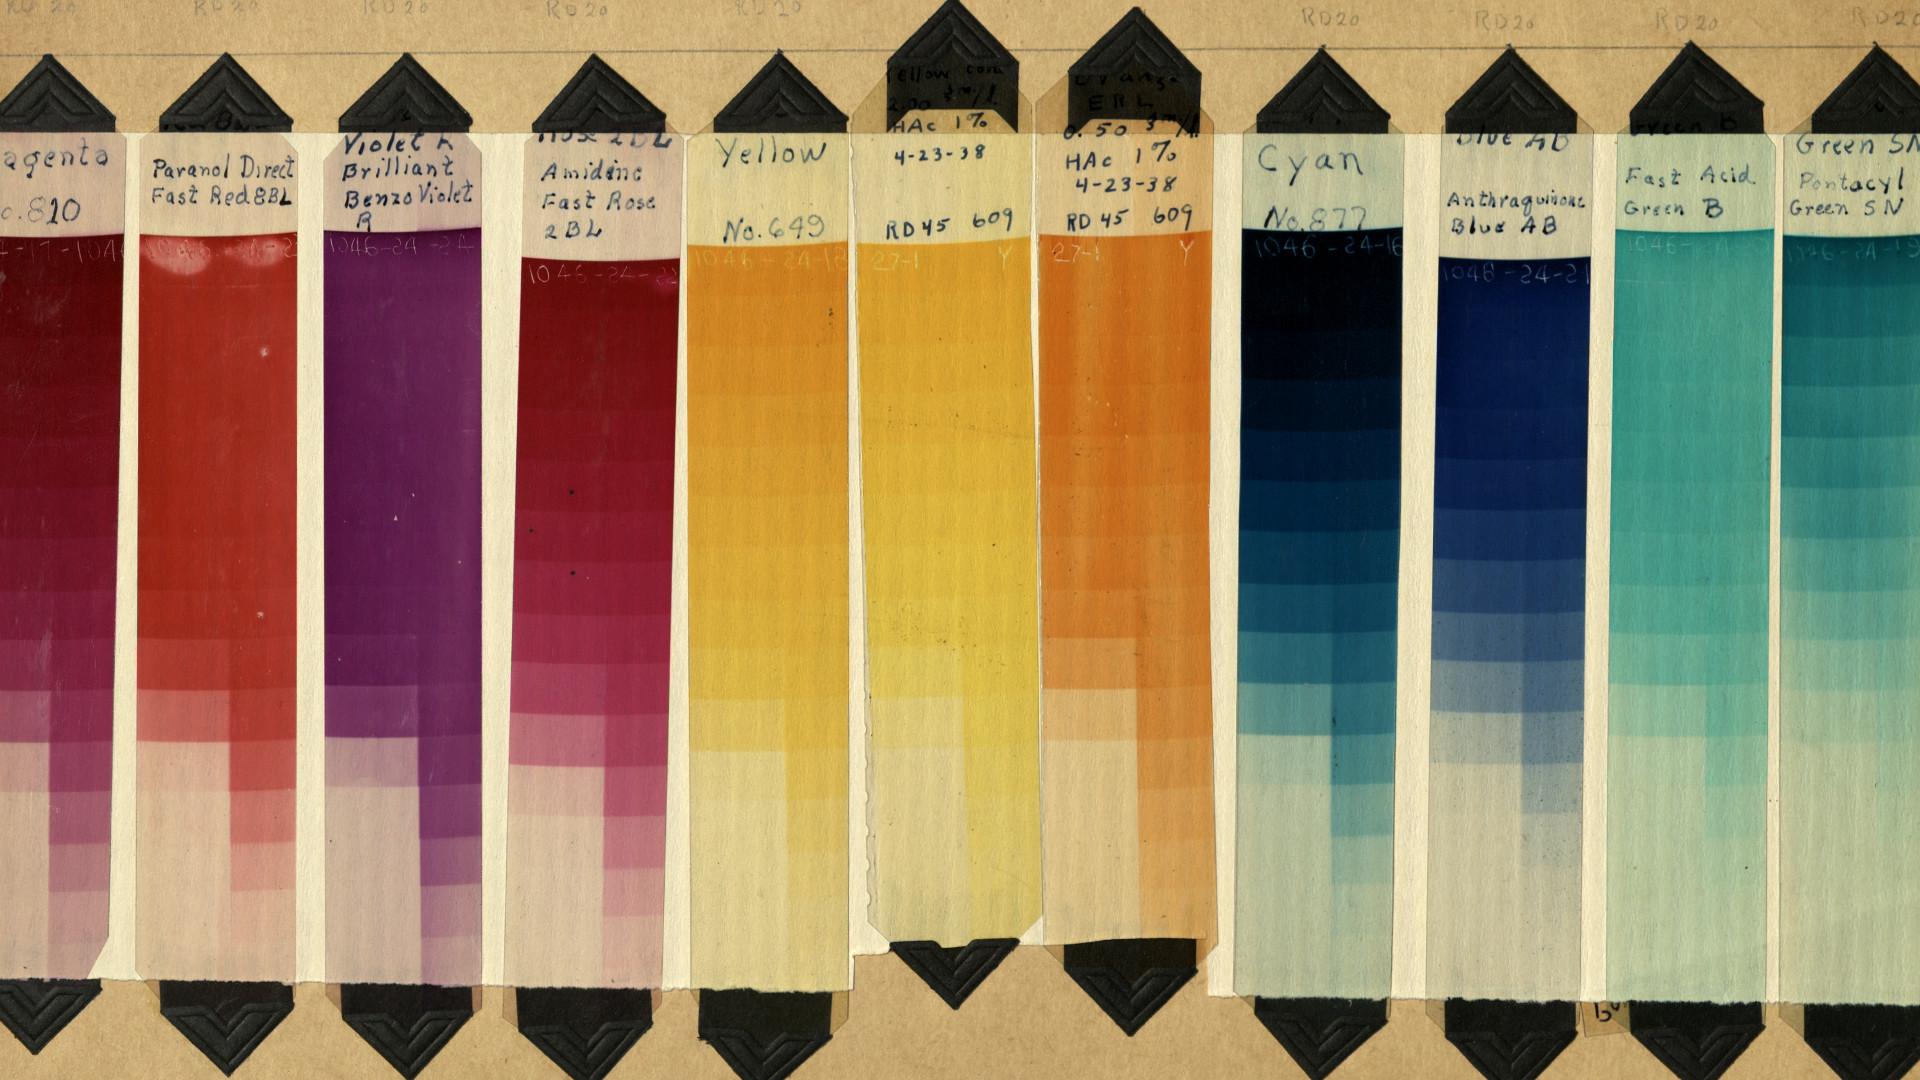 RD20
RD20
RD20
RD20
RD20
RD20
RD20
RD20
RD20
agenta
o.810
4-17-1046
Paranol Direct
Fast Red 8BL
Violet R
Brilliant
Benzo Violet
R
1046-24-24
Rose 2BL
Amidine
Fast Rose
2BL
1046-24-22
Yellow
No.649
1046-24-18
Yellow conc
2.00 gm/l.
HAc 1%
4-23-38
RD45 609
27-1 Y
Orange
ERL
0.50 gm/l.
HAc 1%
4-23-38
RD45 609
27-1 Y
Cyan
No.877
1046-24-16
Blue AB
Anthraquinone
Blue AB
1046-24-21
Green B
Fast Acid
Green B
1046
Green SN
Pontacyl
Green SN
1046-24-19